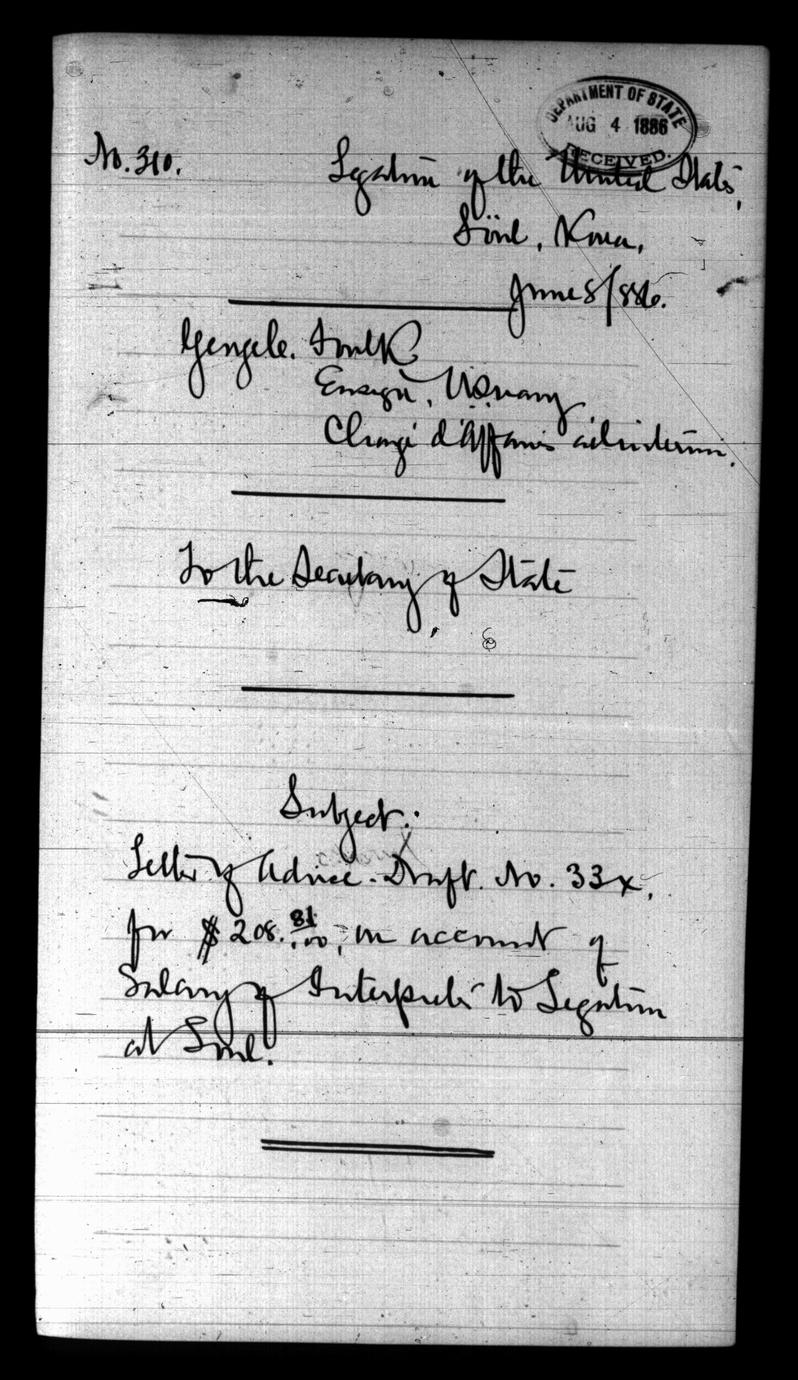 DEPARTMENT OF STATE
AUG 4 1886
RECEIVED.
No. 310.
Legation of the United States,
Söul, Korea,
June 8/886.
George C. Foulk
Ensign, US Navy
Chargé d'Affaires ad interim.
To the Secretary of State
Subject:
Letter of Advice. Draft. No. 33x,
for $208. 81/100, on account of
Salary of Interpreter to Legation
at Söul.